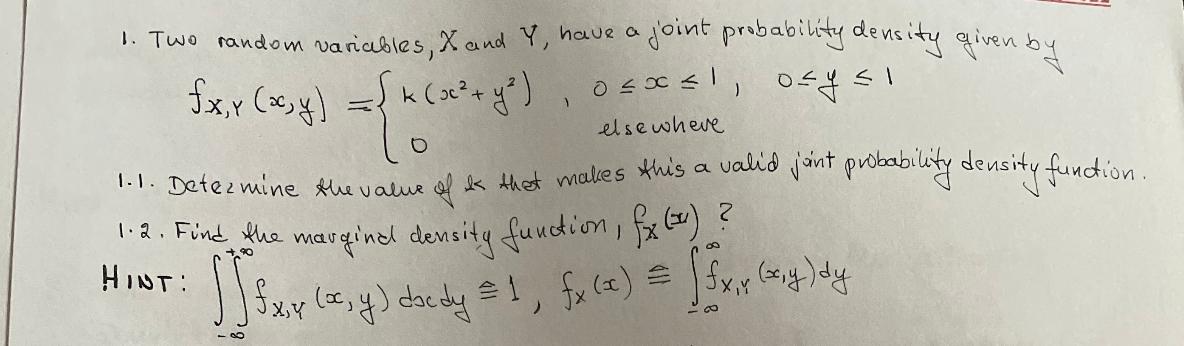 1. Two random variables, X and Y, have a joint probability density given by
f_{X,Y} (x,y) = { k (x² + y²) , 0 ≤ x ≤ 1 , 0 ≤ y ≤ 1
0 elsewhere
1.1. Determine the value of k that makes this a valid joint probability density function.
1.2. Find the marginal density function, f_X (x) ?
HINT: ∬_{-∞}^{+∞} f_{X,Y} (x,y) dx dy ≙ 1 , f_X (x) ≙ ∫_{-∞}^{∞} f_{X,Y} (x,y) dy